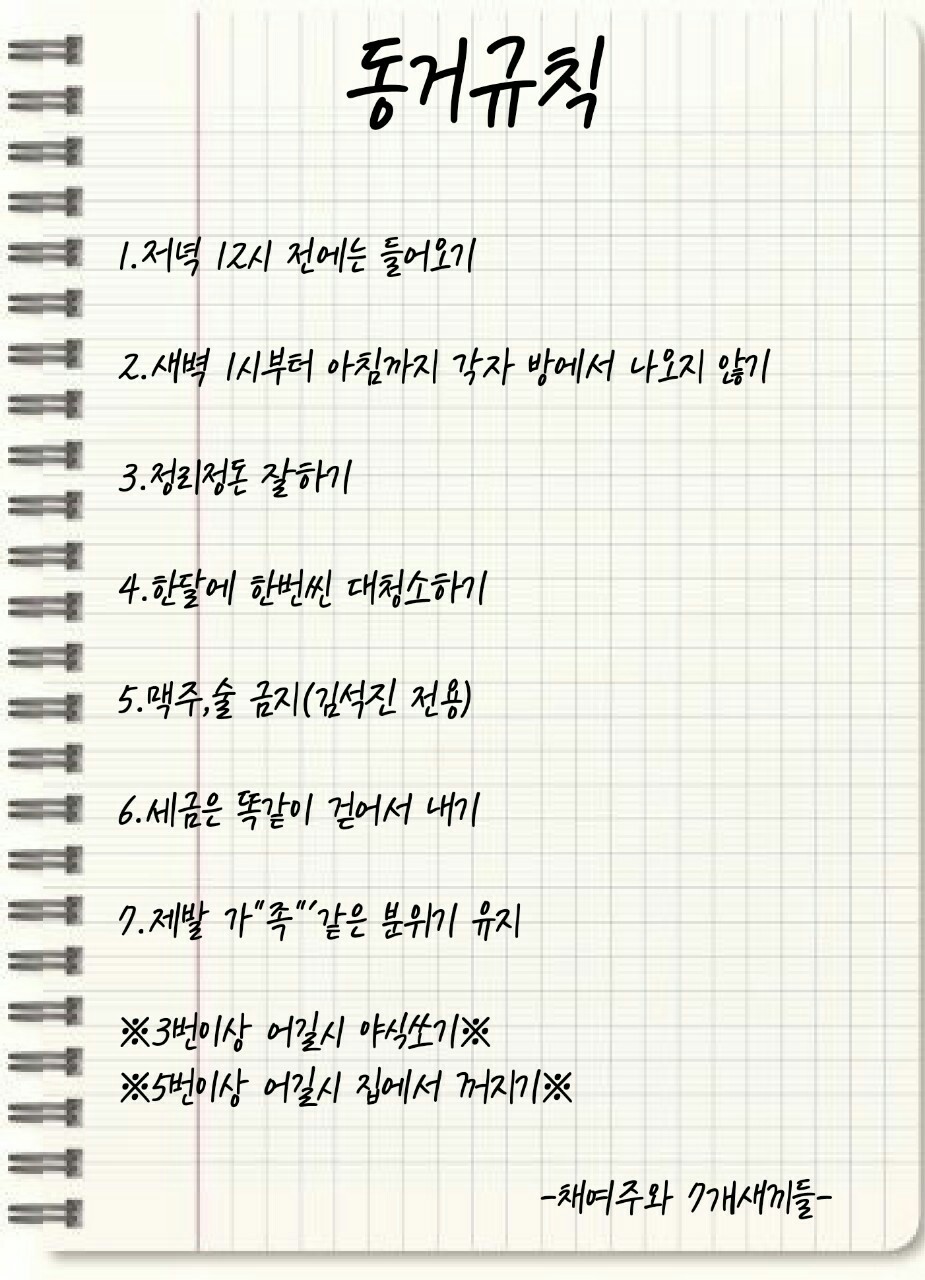 동거규칙
1.저녁 12시 전에는 들어오기
2.새벽 1시부터 아침까지 각자 방에서 나오지 않기
3.정리정돈 잘하기
4.한달에 한번씬 대청소하기
5.맥주,술 금지(김석진 전용)
6.세금은 똑같이 걷어서 내기
7.제발 가"족"'같은 분위기 유지
※3번이상 어길시 야식쏘기※
※5번이상 어길시 집에서 꺼지기※
-채여주와 7개새끼들-